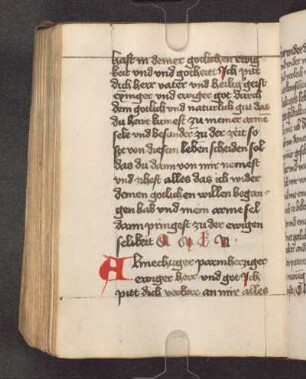 hast in deiner gotlichen ewig
keit und und gotheit Ich pitt
dich herr vater und heilig geist
ewiger und ewiger got durch
dein gotlich und naturlich gut das
du herr kumest zu meiner arme
sele und besunder zu der zeit so
sie von disem leben scheiden sol
das du dann von mir nemest
und zihest alles das ich wider
deinen gotlichen willen began
gen hab und mein arme sel
dann pringest zu der ewigen
selikeit Amen
Almechtiger parmherziger
ewiger herr und got Ich
pitt dich an mir alles